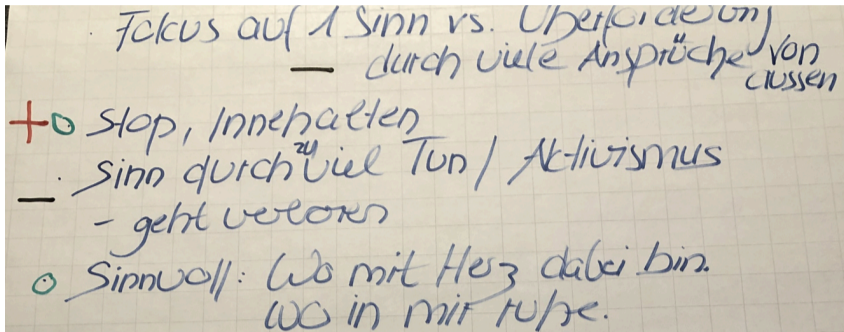 · Fokus auf 1 Sinn vs. Überforderung
— durch viele Ansprüche von aussen
+o Stop, Innehalten
· Sinn durch zu viel Tun / Aktivismus
— - geht verloren
o Sinnvoll: Wo mit Herz dabei bin.
Wo in mir ruhe.